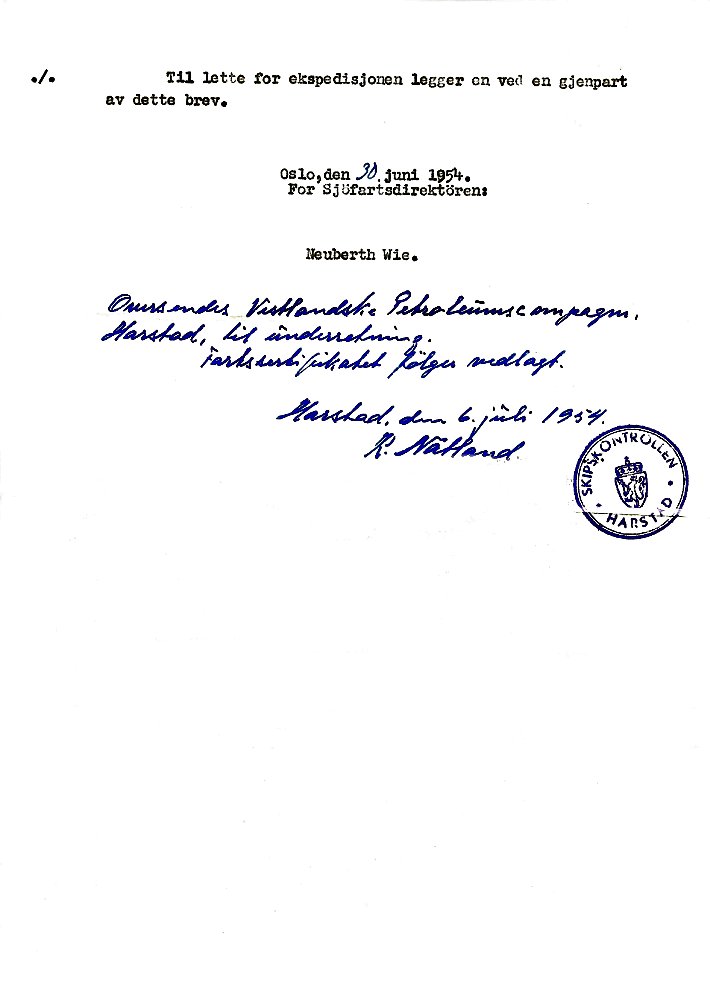 ./.	Til lette for ekspedisjonen legger en ved en gjenpart
av dette brev.
Oslo,den 30. juni 1954.
For Sjöfartsdirektören:
Neuberth Wie.
Oversendes Vestlandske Petroleumscompagni,
Harstad, til underretning.
Fartssertifikatet følger vedlagt.
Harstad, den 6. juli 1954.
R. Nätland.
SKIPSKONTROLLEN
HARSTAD